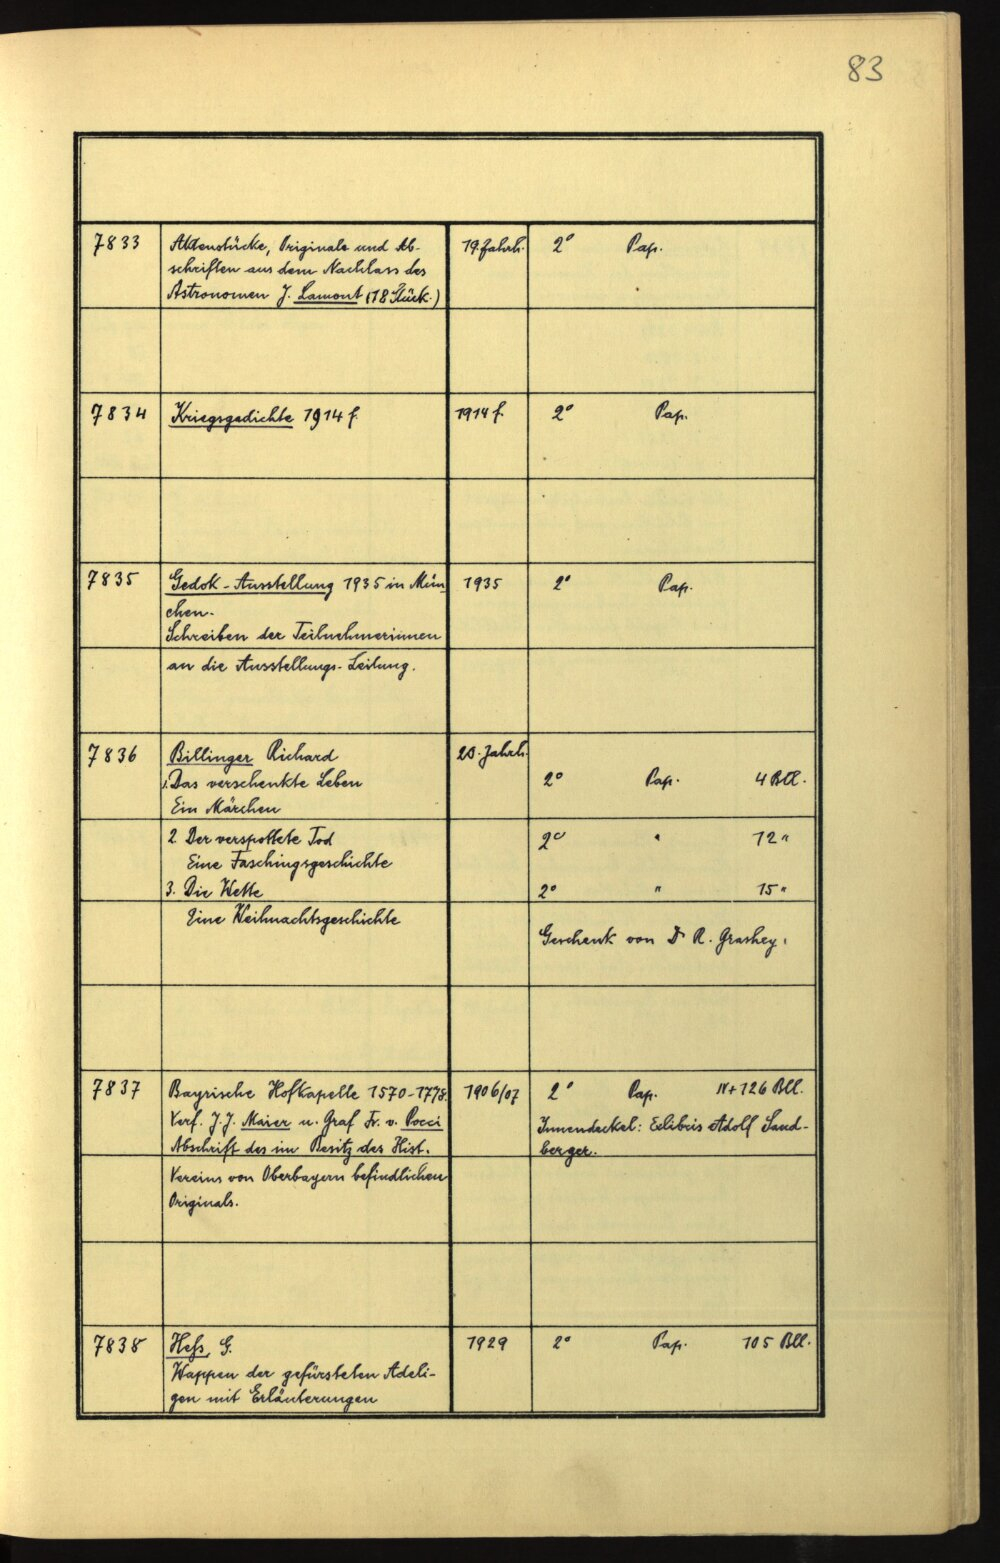 83
7833 Aktenstücke, Originale und Ab- 19. Jahrh. 2° Pap.
schriften aus dem Nachlass des
Astronomen J. Lamont (18 Stück.)
7834 Kriegsgedichte 1914 f. 1914 f. 2° Pap.
7835 Gedok-Ausstellung 1935 in Mün- 1935 2° Pap.
chen.
Schreiben der Teilnehmerinnen
an die Ausstellungs-Leitung.
7836 Billinger Richard 20. Jahrh.
1. Das verschenkte Leben 2° Pap. 4 Bll.
Ein Märchen
2 Der verspottete Tod 2° " 12 "
Eine Faschingsgeschichte
3. Die Wette 2° " 15 "
Eine Weihnachtsgeschichte
Geschenk von Dr R. Grashey.
7837 Bayrische Hofkapelle 1570-1778. 1906/07 2° Pap. IV + 126 Bll.
Verf. J.J. Maier u. Graf Fr. v. Pocci Innendeckel: Exlibris Adolf Sand-
Abschrift des im Besitz des Hist. berger.
Vereins von Oberbayern befindlichen
Originals.
7838 Heß, G. 1929 2° Pap. 105 Bll.
Wappen der gefürsteten Adeli-
gen mit Erläuterungen